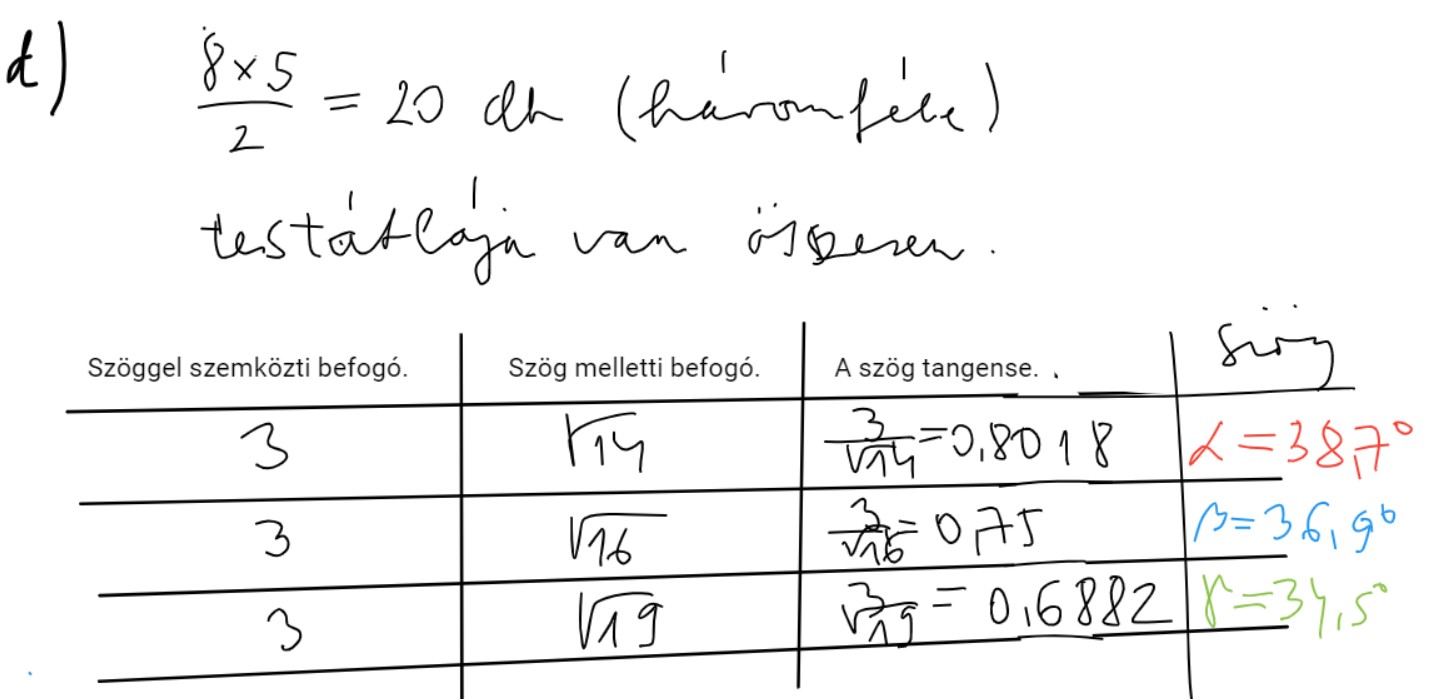 d) 8×5/2 = 20 db (háromféle)
testátlója van összesen.
Szöggel szemközti befogó. Szög melletti befogó. A szög tangense. . Szög
3 √14 3/√14=0,8018 α=38,7°
3 √16 3/√16=0,75 β=36,9°
3 √19 3/√19=0,6882 γ=34,5°